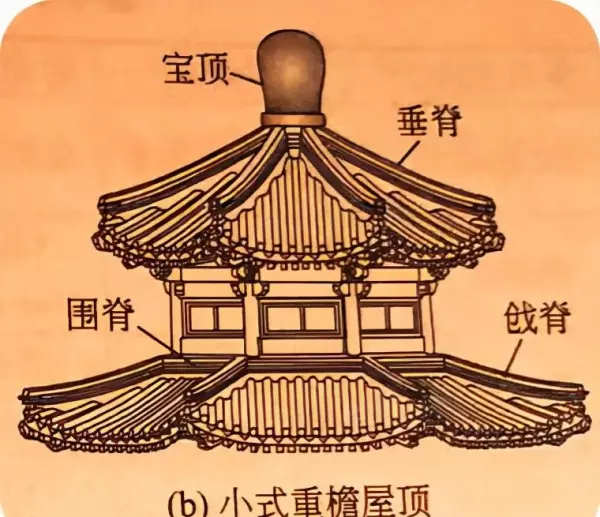 宝顶
垂脊
围脊
戗脊
(b) 小式重檐屋顶